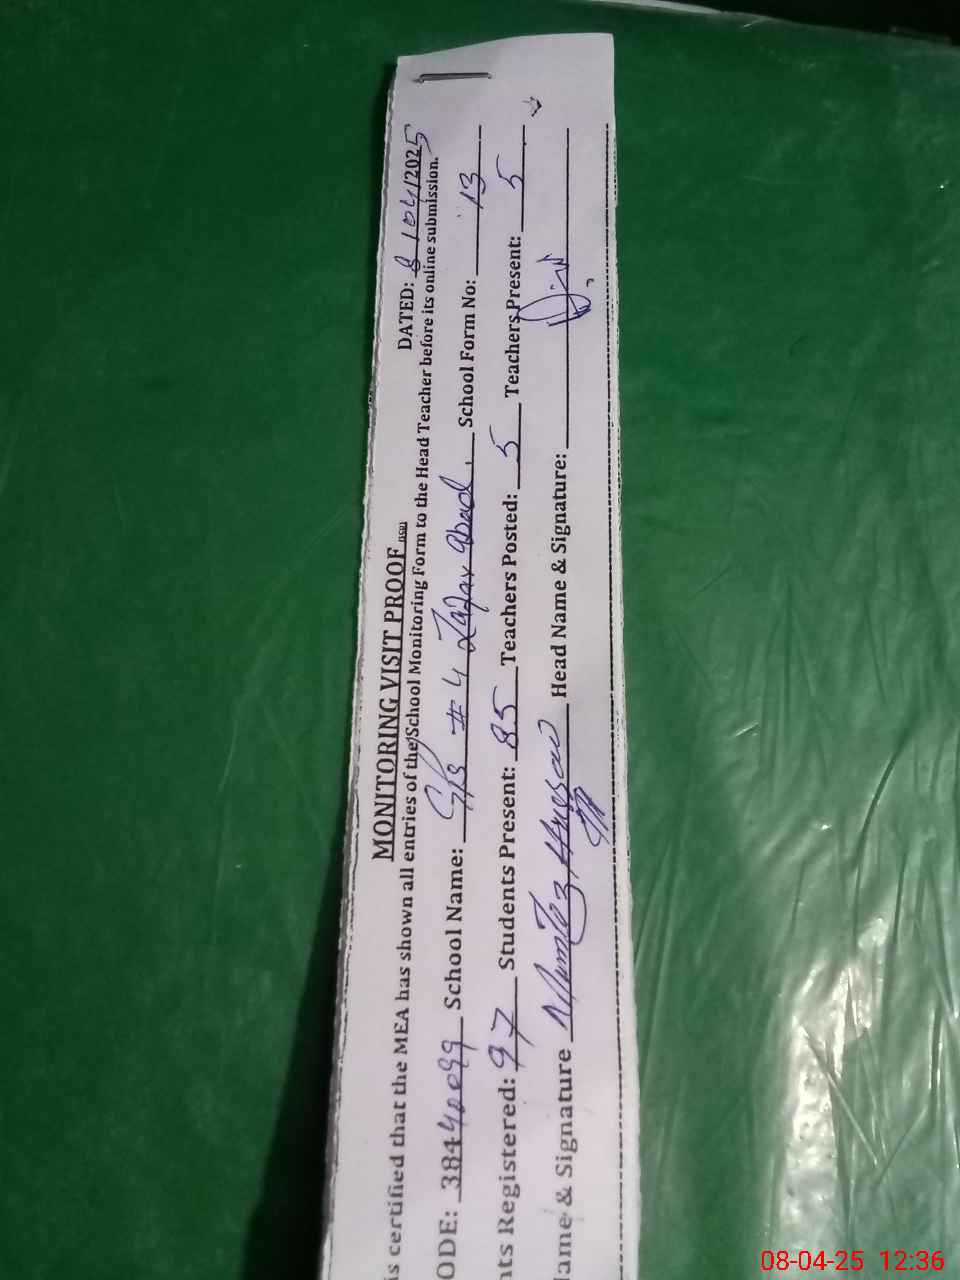 MONITORING VISIT PROOF
DATED: 8/04/2025
is certified that the MEA has shown all entries of the School Monitoring Form to the Head Teacher before its online submission.
ODE: 38440099 School Name: G/S # 4 Zafar abad. School Form No: 13
nts Registered: 97 Students Present: 85 Teachers Posted: 5 Teachers Present: 5
ame & Signature Mumtaz Hussain Head Name & Signature:
08-04-25 12:36